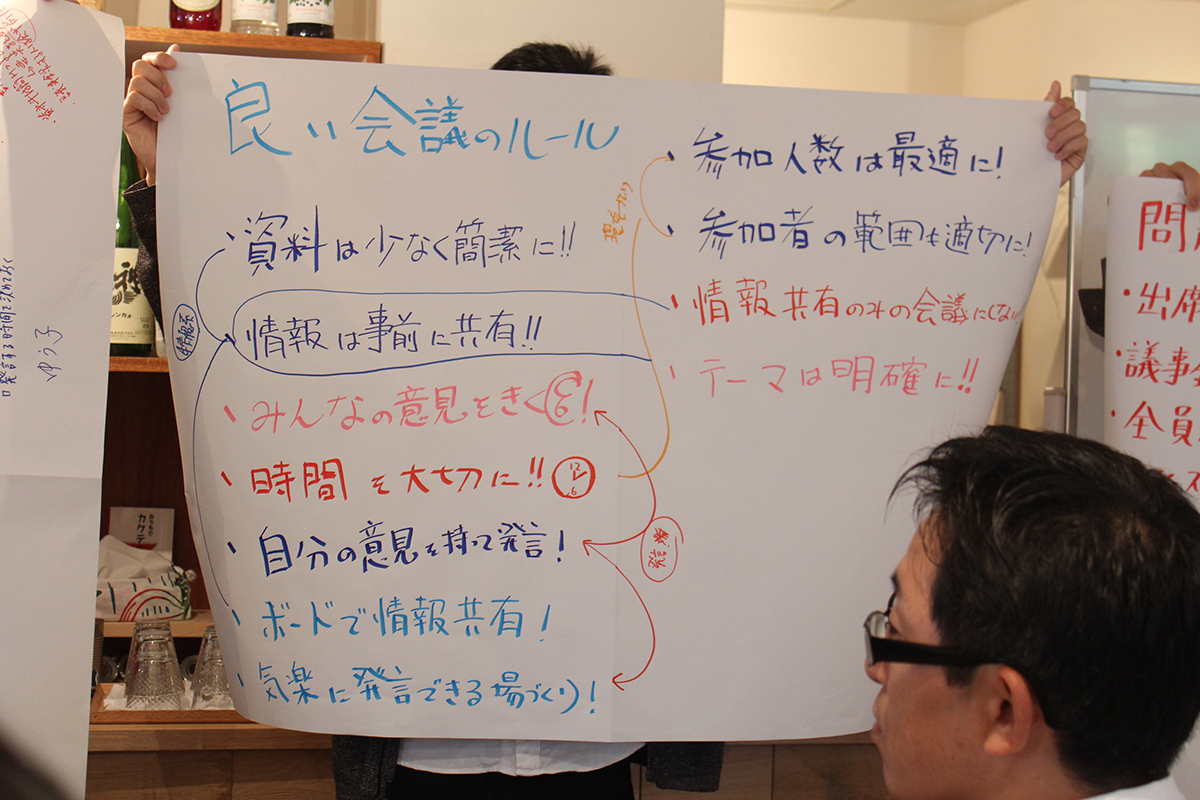 良い会議のルール
・資料は少なく簡潔に!!
情報は事前に共有!!
・みんなの意見をきく!
・時間を大切に!!
12
6
・自分の意見を持って発言!
・ボードで情報共有!
・気楽に発言できる場づくり!
・参加人数は最適に!
・参加者の範囲も適切に!
・情報共有のみの会議にしない
・テーマは明確に!!
問
・出席
・議事
・全員
口発言する時間を決めておく
ゆう子